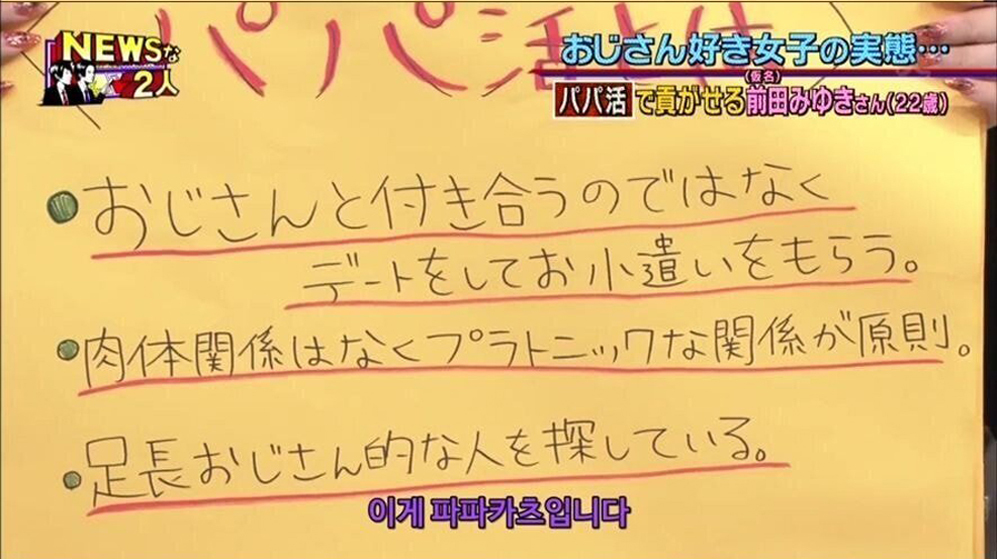 NEWSな
2人
おじさん好き女子の実態…
(仮名)
パパ活で貢がせる前田みゆきさん(22歳)
パパ活
・おじさんと付き合うのではなく
デートをしてお小遣いをもらう。
・肉体関係はなくプラトニックな関係が原則。
・足長おじさん的な人を探している。
이게 파파카츠입니다